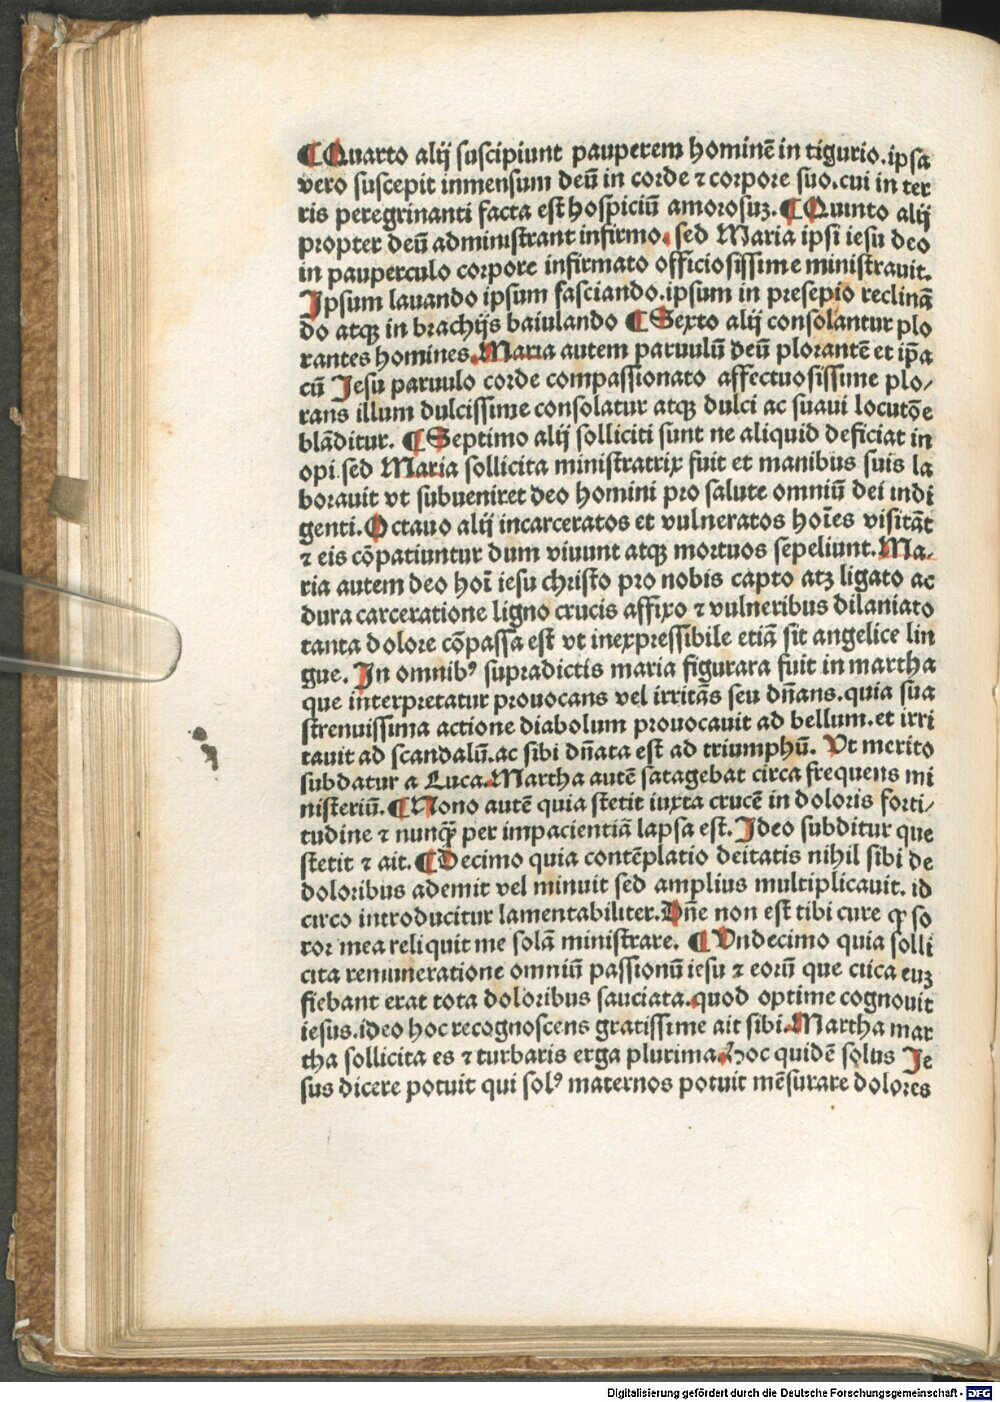 ¶Quarto alij suscipiunt pauperem hominē in tigurio.ipsa
vero suscepit inmensum deū in corde ⁊ corpore suo.cui in ter
ris peregrinanti facta est hospiciū amorosuꝫ.¶Quinto alij
propter deū administrant infirmo. sed Maria ipsi iesu deo
in pauperculo corpore infirmato officiosissime ministrauit.
Ipsum lauando ipsum fasciando.ipsum in presepio reclinā
do atqꝫ in brachijs baiulando ¶Sexto alij consolantur plo
rantes homines.Maria autem paruulū deū plorantē et ip̄a
cū Iesu paruulo corde compassionato affectuosissime plo/
rans illum dulcissime consolatur atqꝫ dulci ac suaui locutōe
blāditur. ¶Septimo alij solliciti sunt ne aliquid deficiat in
opi.sed Maria sollicita ministratrix fuit et manibus suis la
borauit vt subueniret deo homini pro salute omniū dei indi
genti.Octauo alij incarceratos et vulneratos hoīes visitāt
⁊ eis cōpatiuntur dum viuunt atqꝫ mortuos sepeliunt.Ma-
ria autem deo hoī iesu christo pro nobis capto atꝫ ligato ac
dura carceratione ligno crucis affixo ⁊ vulneribus dilaniato
tanta dolore cōpassa est vt inexpressibile etiā sit angelice lin
gue. In omnibꝰ supradictis maria figurara fuit in martha
que interpretatur prouocans vel irritās seu dn̄ans.quia sua
strenuissima actione diabolum prouocauit ad bellum.et irri
tauit ad scandalū.ac sibi dn̄ata est ad triumphū. Vt merito
subdatur a Luca.Martha autē satagebat circa frequens mi
nisteriū.¶Nono autē quia stetit iuxta crucē in doloris forti/
tudine ⁊ nunqꝫ̄ per impacientiā lapsa est.Ideo subditur que
stetit ⁊ ait.¶Decimo quia contēplatio deitatis nihil sibi de
doloribus ademit vel minuit sed amplius multiplicauit. id
circo introducitur lamentabiliter.Dn̄e non est tibi cure ꝙ so
ror mea reliquit me solā ministrare. ¶Vndecimo quia solli
cita remuneratione omniū passionū iesu ⁊ eorū que circa euꝫ
fiebant erat tota doloribus sauciata.quod optime cognouit
iesus.ideo hoc recognoscens gratissime ait sibi.Martha mar
tha sollicita es ⁊ turbaris erga plurima.Hoc quidē solus Ie
sus dicere potuit qui solꝰ maternos potuit mēsurare dolores
Digitalisierung gefördert durch die Deutsche Forschungsgemeinschaft - DFG